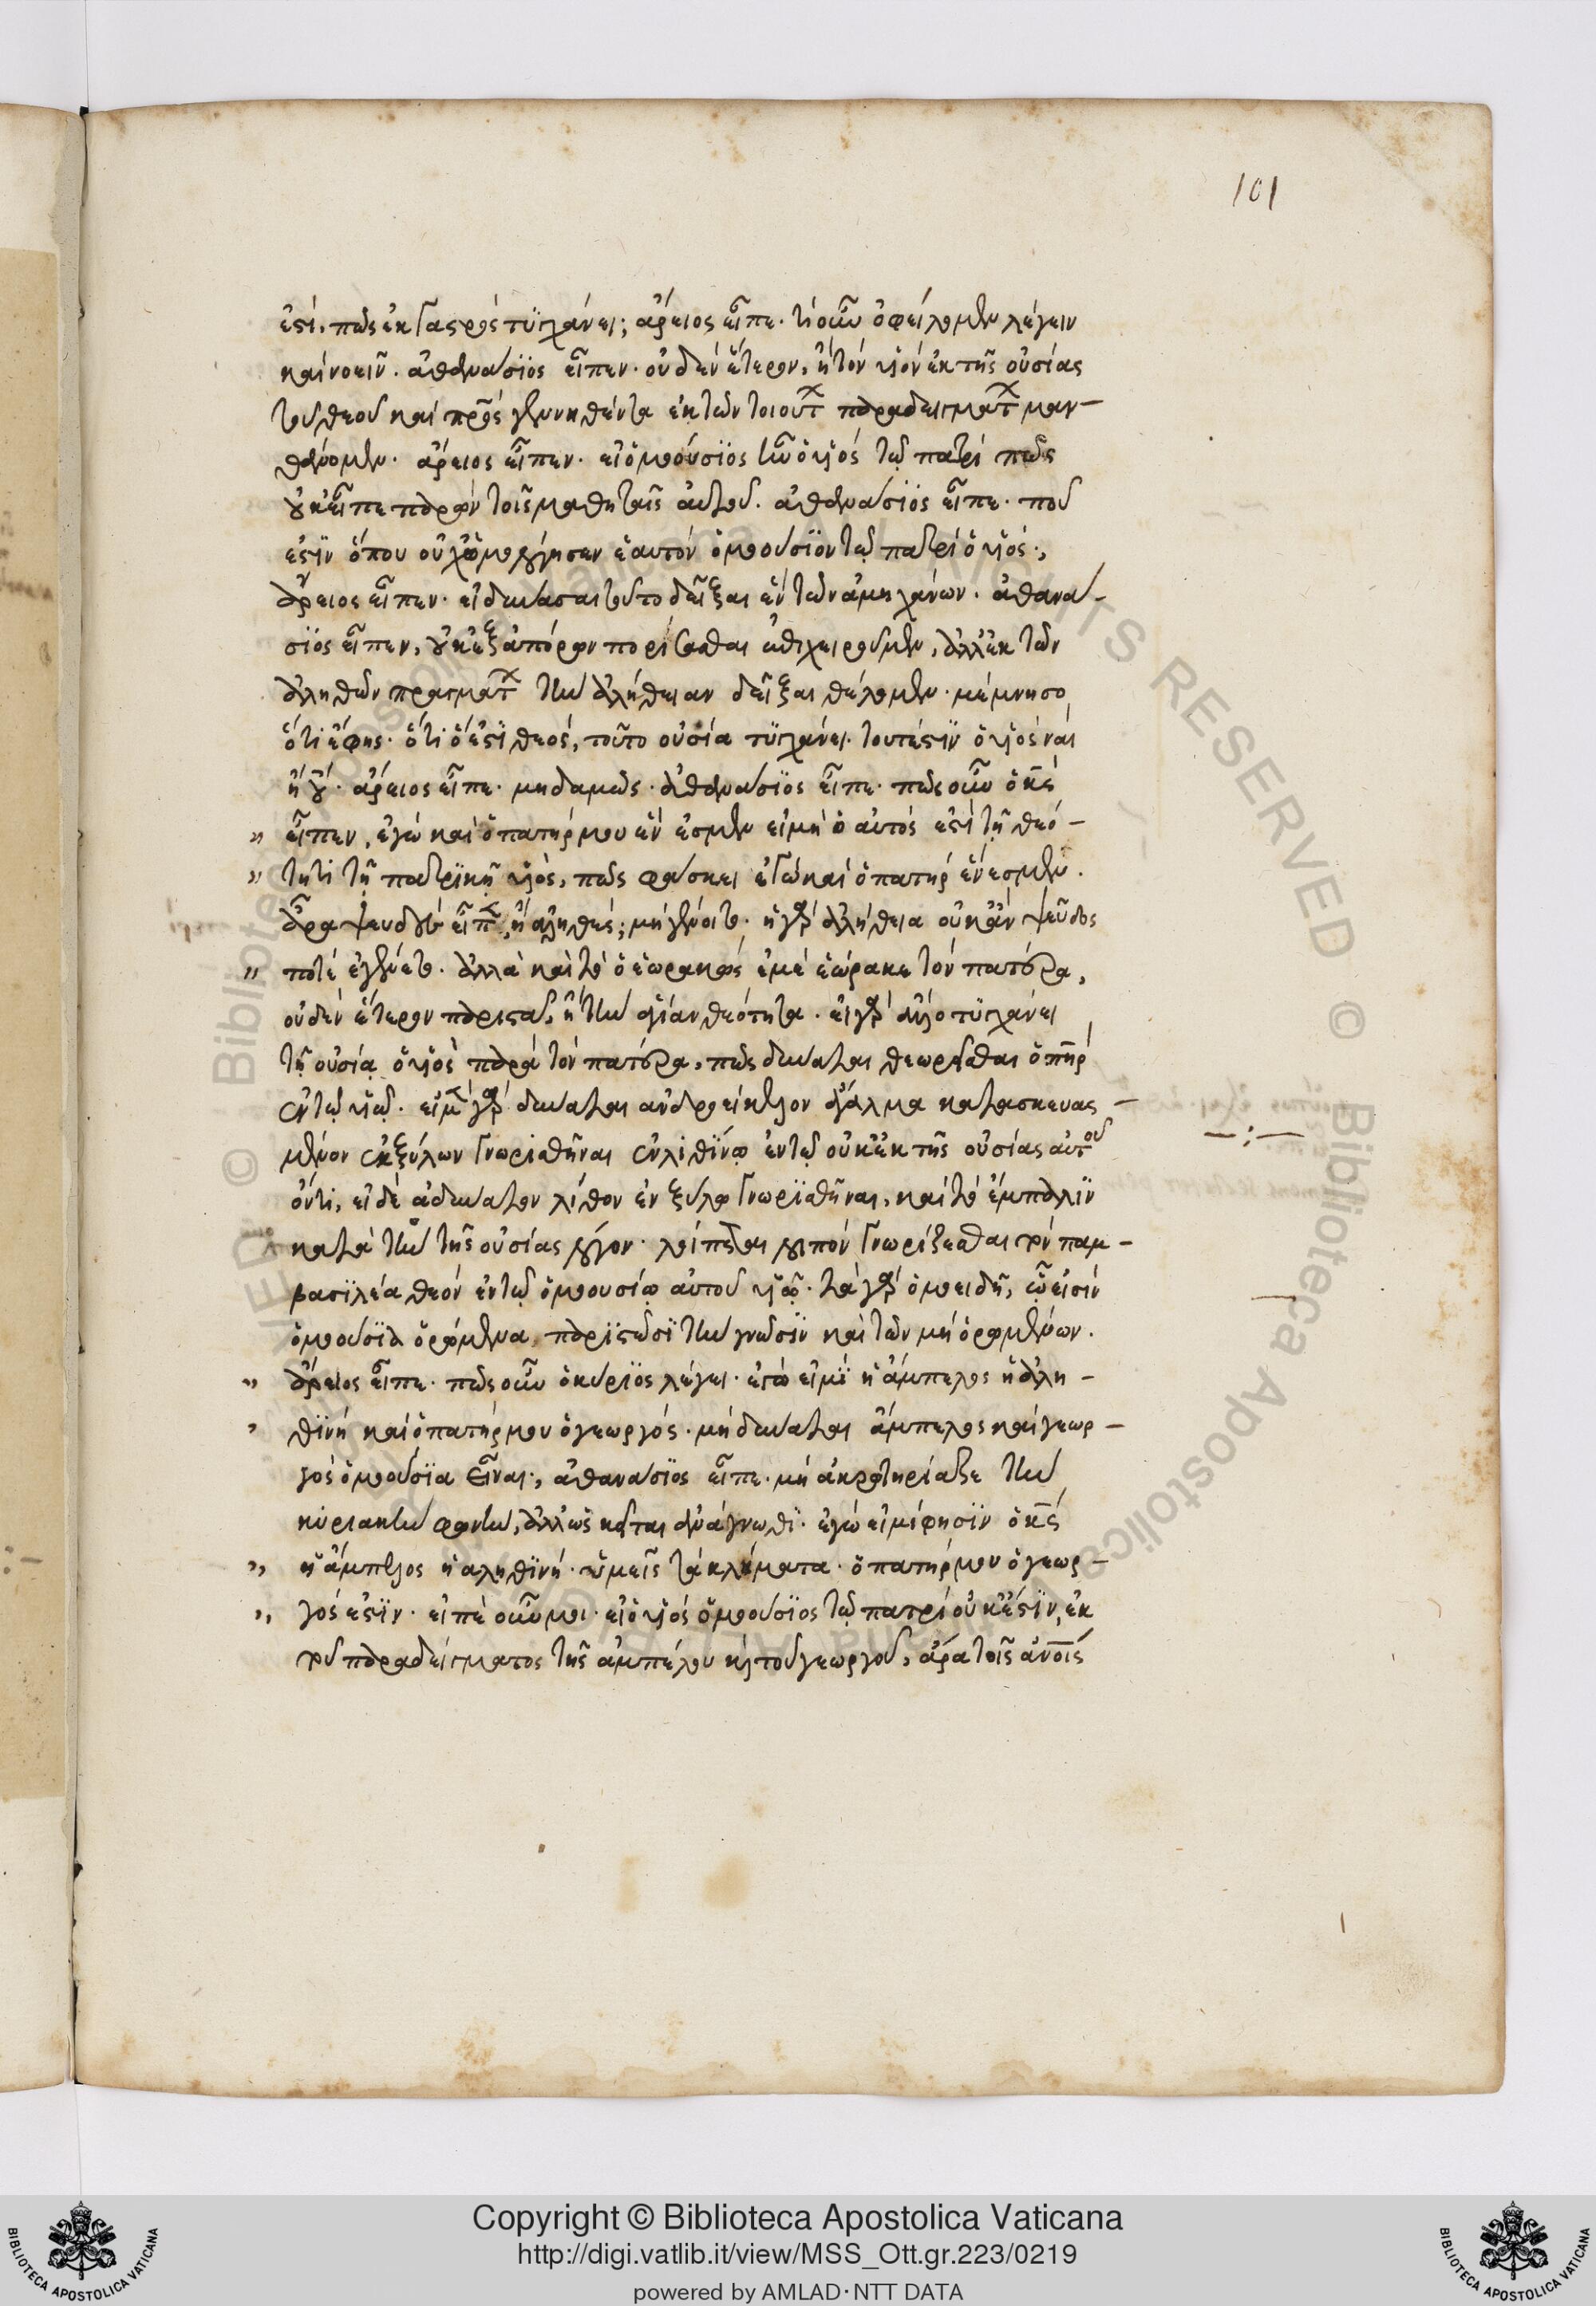 101
ἐστί. πῶς ἐκ γαστρὸς τϋγχάνει; ἄρειος εἶπε. τί οὖν ὀφείλομεν λέγειν
καὶ νοεῖν. ἀθανάσϊος εἶπεν. οὐδὲν ἕτερον, ἢ τὸν υἱὸν ἐκ τῆς οὐσίας
τοῦ θεοῦ καὶ πρς γεννηθέντα ἐκ τῶν τοιούτ παραδειγμάτ μαν-
θάνομεν. ἄρειος εἶπεν. εἰ ὁμοούσϊος ἦν ὁ υἱὸς τῷ πατρὶ πῶς
οὐκ εἶπε παρὼν τοῖς μαθηταῖς αὐτοῦ. ἀθανάσϊος εἶπε. ποῦ
ἐστϊν ὅπου οὐχ ὡμολόγησεν ἑαυτὸν ὁμοούσϊον τῷ πατρὶ ὁ υἱός.,
ἄρειος εἶπεν. εἰ δύνασαι τοῦτο δεῖξαι ἓν τῶν ἀμηχάνων. ἀθανά-
σϊος εἶπεν, οὐκ ἐξ ἀπόρων πορίζεσθαι ἐπιχειροῦμεν, ἀλλ' ἐκ τῶν
ἀληθῶν πραγμάτ τὴν ἀλήθειαν δεῖξαι θέλομεν. μέμνησο
ὅτι ἔφης. ὅτι ὅ ἐστϊ θεός, τοῦτο οὐσία τϋγχάνει. τουτέστϊν ὁ υἱὸς ναί
ἢ οὔ. ἄρειος εἶπε. μηδαμῶς. ἀθανάσϊος εἶπε. πῶς οὖν ὁ κς
εἶπεν, ἐγὼ καὶ ὁ πατήρ μου ἕν ἐσμεν εἰ μὴ ὁ αὐτός ἐστὶ τῇ θεό-
τητι τῇ πατρϊκῇ υἱός, πῶς φάσκει ἐγὼ καὶ ὁ πατὴρ ἕν ἐσμεν.
ἆρα ψευδὲς εἶπ, ἢ ἀληθές; μὴ γένοιτο. ἡ γὰρ ἀλήθεια οὐκ ἂν ψεῦδος
ποτὲ ἐγένετο. ἀλλὰ καὶ τὸ ὁ ἑωρακὼς ἐμὲ ἑώρακε τὸν πατέρα,
οὐδὲν ἕτερον παριστᾷ, ἢ τὴν μίαν θεότητα. εἰ γὰρ ἄλλο τϋγχάνει
τῇ οὐσίᾳ ὁ υἱὸς παρὰ τὸν πατέρα, πῶς δύναται θεωρεῖσθαι ὁ πηρ
ἐν τῷ υἱῷ. εἰ μὲν γὰρ δύναται ἀνδροείκελον ἄγαλμα κατασκευασ-
μένον ἐκ ξύλων γνωρισθῆναι ἐν λιθϊνῳ ἐν τῷ οὐκ ἐκ τῆς οὐσίας αὐτοῦ
ὄντι, εἰ δὲ ἀδύνατον λίθον ἐν ξύλῳ γνωρϊσθῆναι, καὶ τὸ ἔμπαλϊν
κατὰ τὸν τῆς οὐσίας λόγον. λείπεται λοιπὸν γνωρίζεσθαι τὸν παμ-
βασϊλέα θεὸν ἐν τῷ ὁμοουσίῳ αὐτοῦ υἱῷ. τὰ γὰρ ὁμοειδῆ, ὧ εἰσὶν
ὁμοούσϊα ὁρώμενα, παρϊστῶσϊ τὴν γνῶσϊν καὶ τῶν μὴ ὁρωμένων.
ἄρειος εἶπε. πῶς οὖν ὁ κύρϊος λέγει. ἐγώ εἰμϊ ἡ ἄμπελος ἡ ἀλη-
θϊνὴ καὶ ὁ πατήρ μου ὁ γεωργός. μὴ δύναται ἄμπελος καὶ γεωρ-
γὸς ὁμοούσϊα εἶναι., ἀθανάσϊος εἶπε. μὴ ἀκρωτηρίαζε τὴν
κυριακὴν φωνήν, ἀλλ' ὡς κεῖται ἀνάγνωθϊ. ἐγώ εἰμί φησϊν ὁ κς
ἡ ἄμπελος ἡ ἀληθϊνή. ὑμεῖς τὰ κλήματα. ὁ πατήρ μου ὁ γεωρ-
γός ἐστϊν. εἰπὲ οὖν μοι. εἰ ὁ υἱὸς ὁμοούσϊος τῷ πατρὶ οὐκ ἔστϊν, ἐκ
τοῦ παραδείγματος τῆς ἀμπέλου καὶ τοῦ γεωργοῦ, ἆρα τοῖς ἀνοις
Copyright © Biblioteca Apostolica Vaticana
http://digi.vatlib.it/view/MSS_Ott.gr.223/0219
powered by AMLAD·NTT DATA